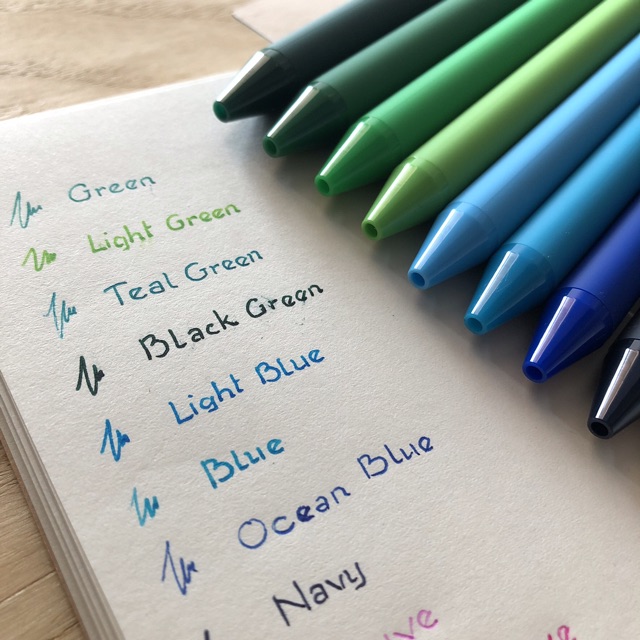 Green
Light Green
Teal Green
Black Green
Light Blue
Blue
Ocean Blue
Navy